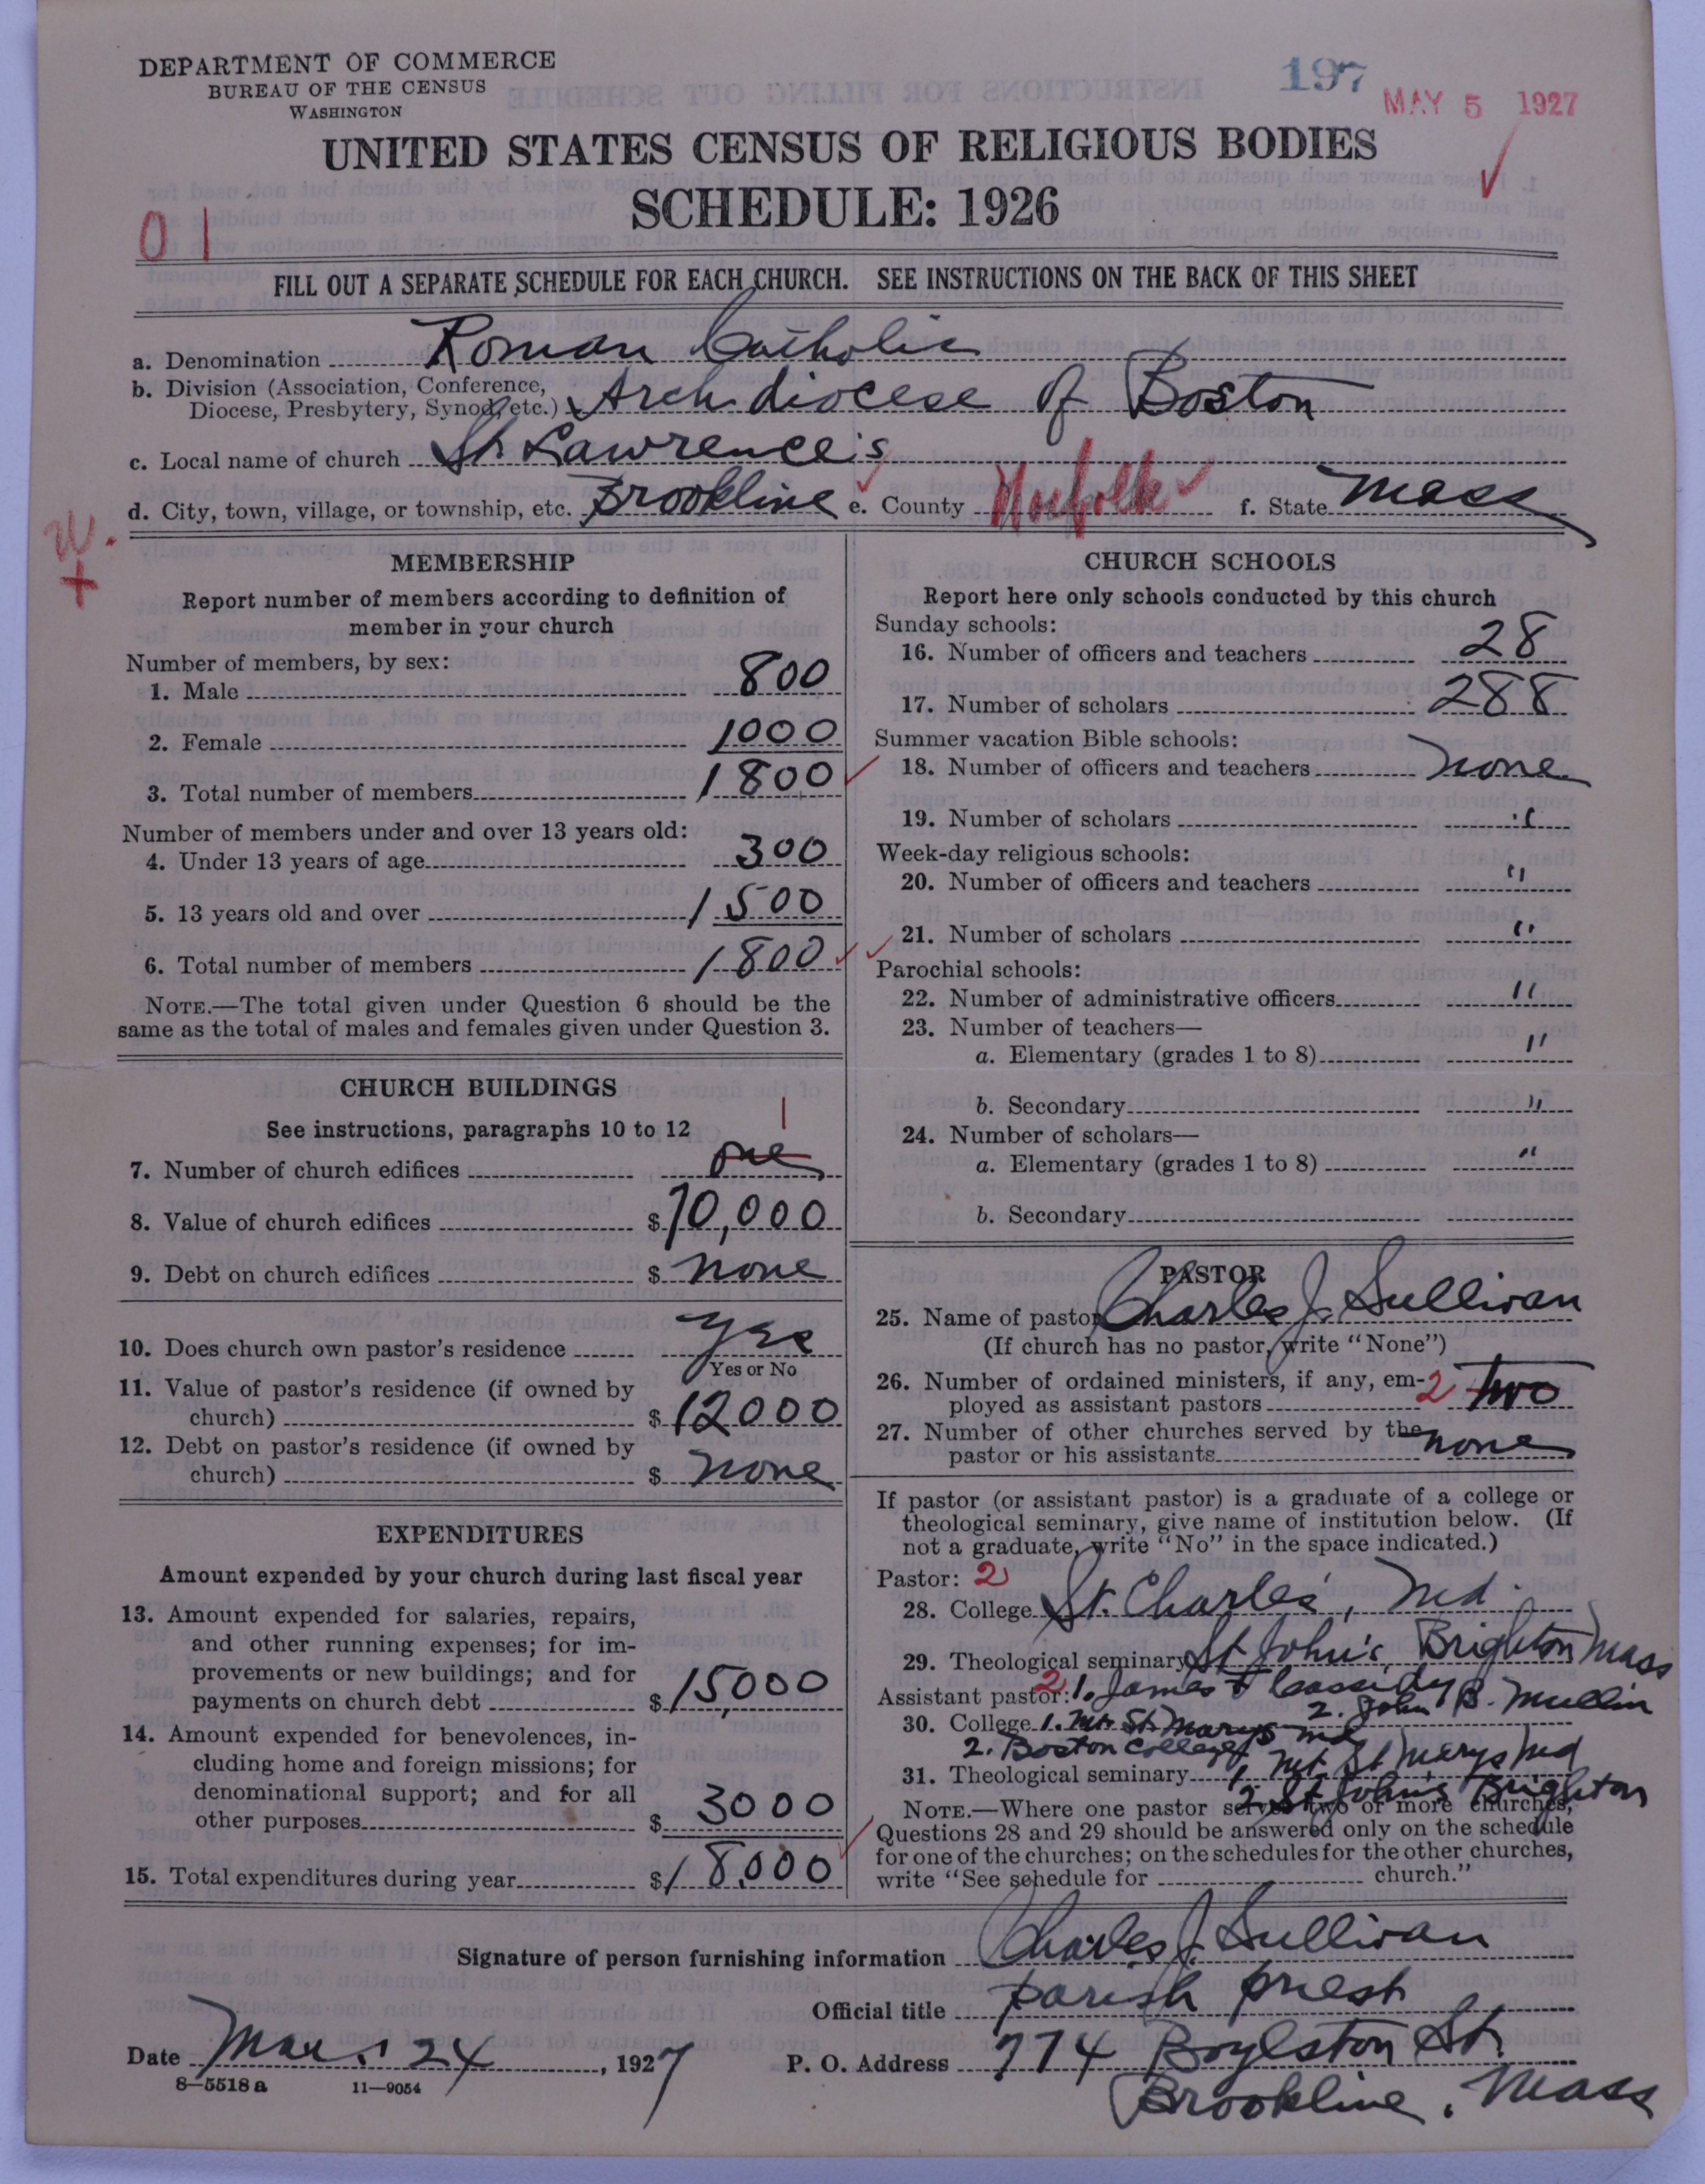 DEPARTMENT OF COMMERCE
BUREAU OF THE CENSUS
WASHINGTON
197
MAY 5 1927
UNITED STATES CENSUS OF RELIGIOUS BODIES
SCHEDULE: 1926
01
FILL OUT A SEPARATE SCHEDULE FOR EACH CHURCH. SEE INSTRUCTIONS ON THE BACK OF THIS SHEET
a. Denomination Roman Catholic
b. Division (Association, Conference, Diocese, Presbytery, Synod, etc.) Archdiocese of Boston
c. Local name of church St Lawrence's
d. City, town, village, or township, etc. Brookline e. County Norfolk f. State Mass
W.
+
MEMBERSHIP
Report number of members according to definition of
member in your church
Number of members, by sex:
1. Male 800
2. Female 1000
3. Total number of members 1800
Number of members under and over 13 years old:
4. Under 13 years of age 300
5. 13 years old and over 1500
6. Total number of members 1800
NOTE.—The total given under Question 6 should be the
same as the total of males and females given under Question 3.
CHURCH BUILDINGS
See instructions, paragraphs 10 to 12
1
7. Number of church edifices one
8. Value of church edifices $ 70,000
9. Debt on church edifices $ none
10. Does church own pastor's residence yes
Yes or No
11. Value of pastor's residence (if owned by
church) $ 12000
12. Debt on pastor's residence (if owned by
church) $ none
EXPENDITURES
Amount expended by your church during last fiscal year
13. Amount expended for salaries, repairs,
and other running expenses; for im-
provements or new buildings; and for
payments on church debt $ 15000
14. Amount expended for benevolences, in-
cluding home and foreign missions; for
denominational support; and for all
other purposes $ 3000
15. Total expenditures during year $ 18,000
CHURCH SCHOOLS
Report here only schools conducted by this church
Sunday schools:
16. Number of officers and teachers 28
17. Number of scholars 288
Summer vacation Bible schools:
18. Number of officers and teachers none
19. Number of scholars "
Week-day religious schools:
20. Number of officers and teachers "
21. Number of scholars "
Parochial schools:
22. Number of administrative officers "
23. Number of teachers—
a. Elementary (grades 1 to 8) "
b. Secondary "
24. Number of scholars—
a. Elementary (grades 1 to 8) "
b. Secondary
PASTOR
25. Name of pastor Charles J. Sullivan
(If church has no pastor, write "None")
26. Number of ordained ministers, if any, em-
ployed as assistant pastors 2 two
27. Number of other churches served by the
pastor or his assistants none
If pastor (or assistant pastor) is a graduate of a college or
theological seminary, give name of institution below. (If
not a graduate, write "No" in the space indicated.)
Pastor: 2
28. College St. Charles', Md.
29. Theological seminary St John's, Brighton Mass
Assistant pastor: 2 1. James F Cassidy 2. John B. Mullin
30. College 1. Mt. St. Marys Md
2. Boston College
31. Theological seminary 1. Mt. St Marys Md
2. St John's Brighton
NOTE.—Where one pastor serves two or more churches,
Questions 28 and 29 should be answered only on the schedule
for one of the churches; on the schedules for the other churches,
write "See schedule for church."
Signature of person furnishing information Charles J. Sullivan
Official title parish priest
Date Mar. 24, 1927 P. O. Address 774 Boylston St.
Brookline, Mass
8—5518 a 11—9054